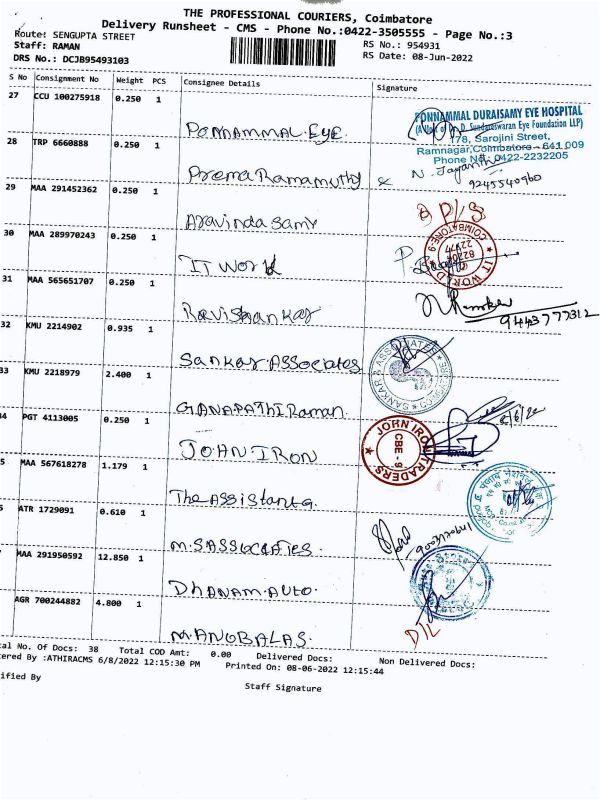 THE PROFESSIONAL COURIERS, Coimbatore
Delivery Runsheet - CMS - Phone No.:0422-3505555 - Page No.:3
Route: SENGUPTA STREET
RS No.: 954931
Staff: RAMAN
RS Date: 08-Jun-2022
DRS No.: DCJB95493103
S No Consignment No Weight PCS Consignee Details Signature
27 CCU 100275918 0.250 1
PONNAMMAL DURAISAMY EYE HOSPITAL
(A Unit of Dr. D. Sundareswaran Eye Foundation LLP)
178, Sarojini Street,
Ramnagar, Coimbatore - 641 009
Phone No: 0422-2232205
PONNAMMAL. EYE.
28 TRP 6660888 0.250 1
N. Jayanthi
9245540960
Prema Ramamuthy
29 MAA 291452362 0.250 1
Aravinda Samy
30 MAA 289970243 0.250 1
IT WORLD
COIMBATORE-9
IT World
31 MAA 565651707 0.250 1
9443777312
Ravishankar
32 KMU 2214902 0.935 1
SANKAR & ASSOCIATES
Sankar Associates
33 KMU 2218979 2.400 1
GANAPATHI Raman.
8/6/22
34 PGT 4113005 0.250 1
JOHN IRON TRADERS
CBE - 9
JOHN IRON
5 MAA 567618278 1.179 1
The Assistant G.
6 ATR 1729091 0.610 1
M.S ASSOCIATES.
7 MAA 291950592 12.850 1
DHANAM AUTO.
AGR 700244882 4.800 1
D/L
MANOBALAS.
al No. Of Docs: 38 Total COD Amt: 0.00 Delivered Docs: Non Delivered Docs:
ered By :ATHIRACMS 6/8/2022 12:15:30 PM Printed On: 08-06-2022 12:15:44
ified By
Staff Signature